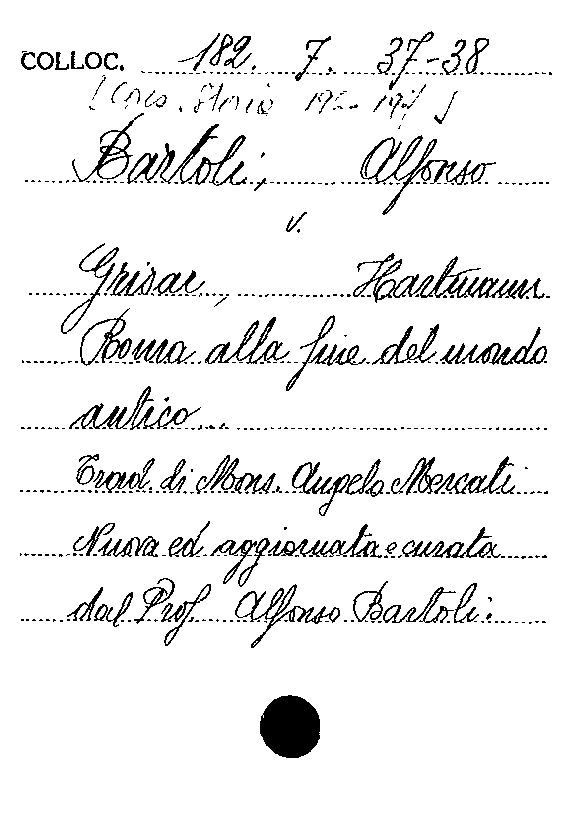 COLLOC. 182. 7. 37-38
Storia
Bartoli, Alfonso
v.
Grisar, Hartmann
Roma alla fine del mondo
antico...
Trad. di Mons. Angelo Mercati
Nuova ed aggiornata e curata
dal Prof. Alfonso Bartoli.